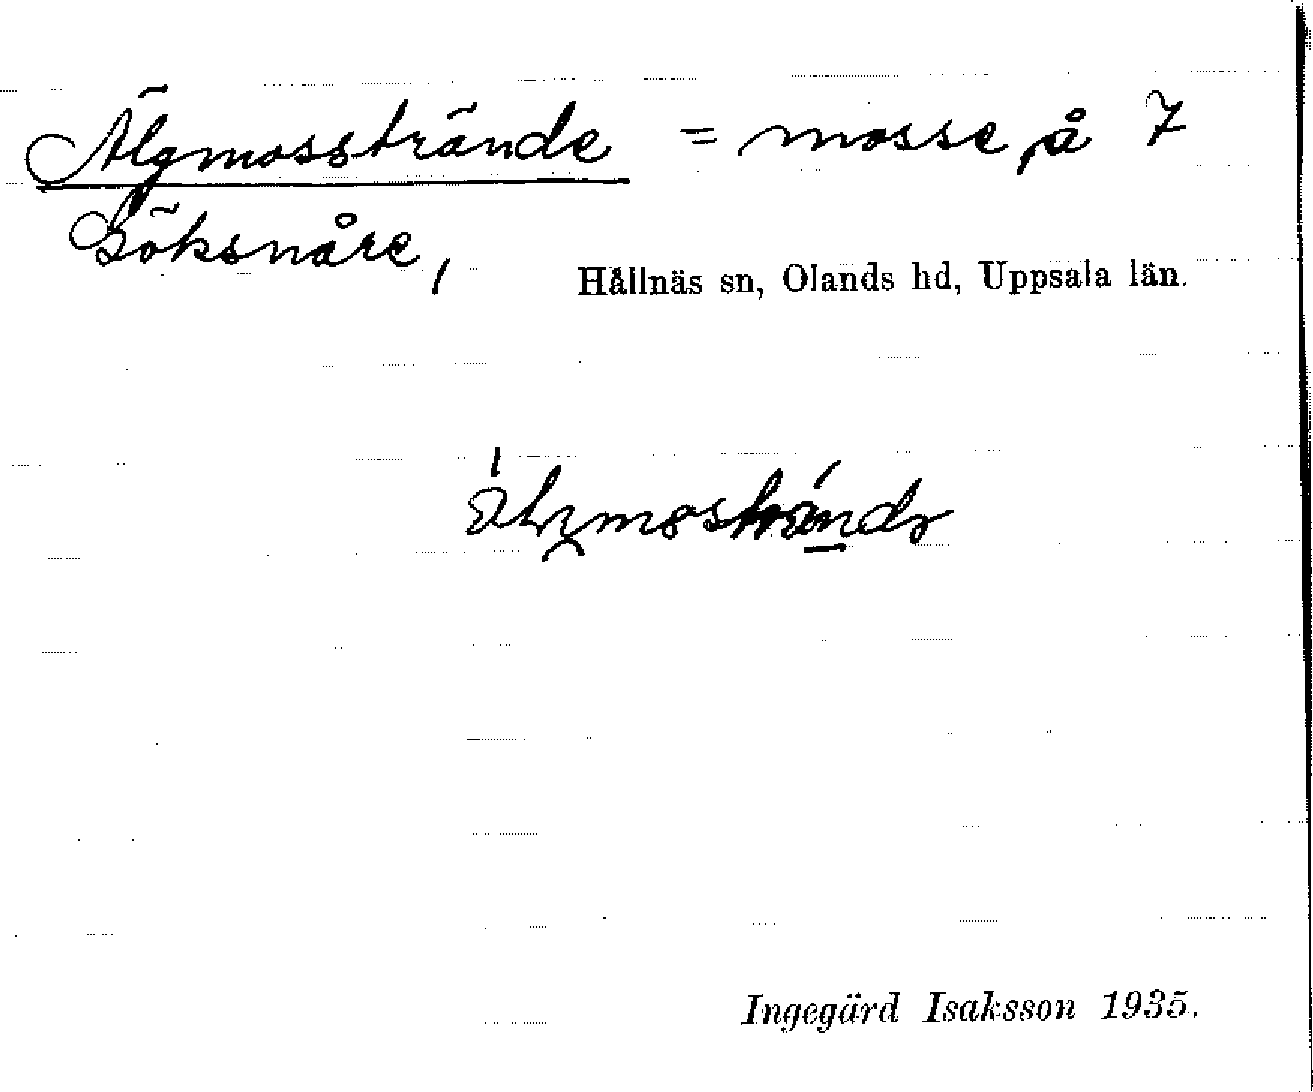 Älgmosstrände = mosse, å 7
Böksnåre,
Hållnäs sn, Olands hd, Uppsala län.
Ingegärd Isaksson 1935.